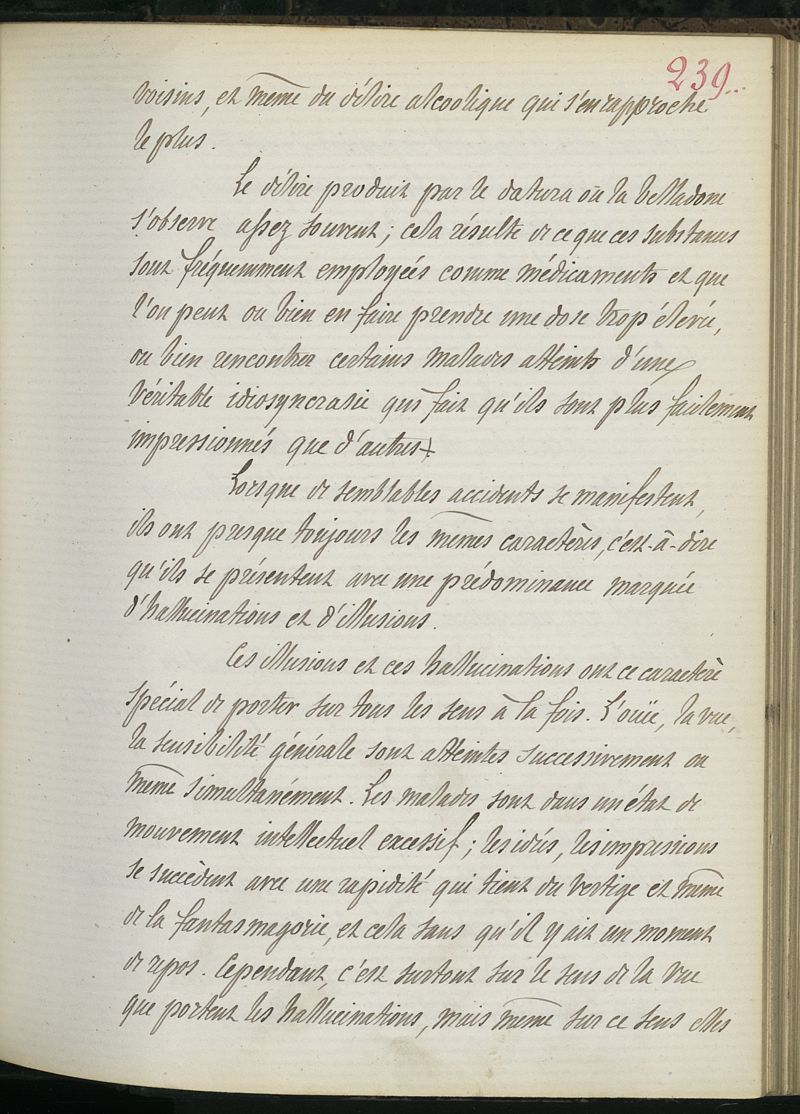 239..
voisins, et même du délire alcoolique qui s'en rapproche
le plus.
Le délire produit par le datura ou la belladone
s'observe assez souvent; cela résulte de ce que ces substances
sont fréquemment employées comme médicaments et que
l'on peut ou bien en faire prendre une dose trop élevée,
ou bien rencontrer certains malades atteints d'une
véritable idiosyncrasie qui fait qu'ils sont plus facilement
impressionnés que d'autres.
Lorsque de semblables accidents se manifestent,
ils ont presque toujours les mêmes caractères, c'est-à-dire
qu'ils se présentent avec une prédominance marquée
d'hallucinations et d'illusions.
Ces illusions et ces hallucinations ont ce caractère
spécial de porter sur tous les sens à la fois. L'ouïe, la vue,
la sensibilité générale sont atteintes successivement ou
même simultanément. Les malades sont dans un état de
mouvement intellectuel excessif; les idées, les impressions
se succèdent avec une rapidité qui tient du vertige et même
de la fantasmagorie, et cela sans qu'il y ait un moment
de repos. Cependant, c'est surtout sur le sens de la vue
que portent les hallucinations, mais même sur ce sens elles